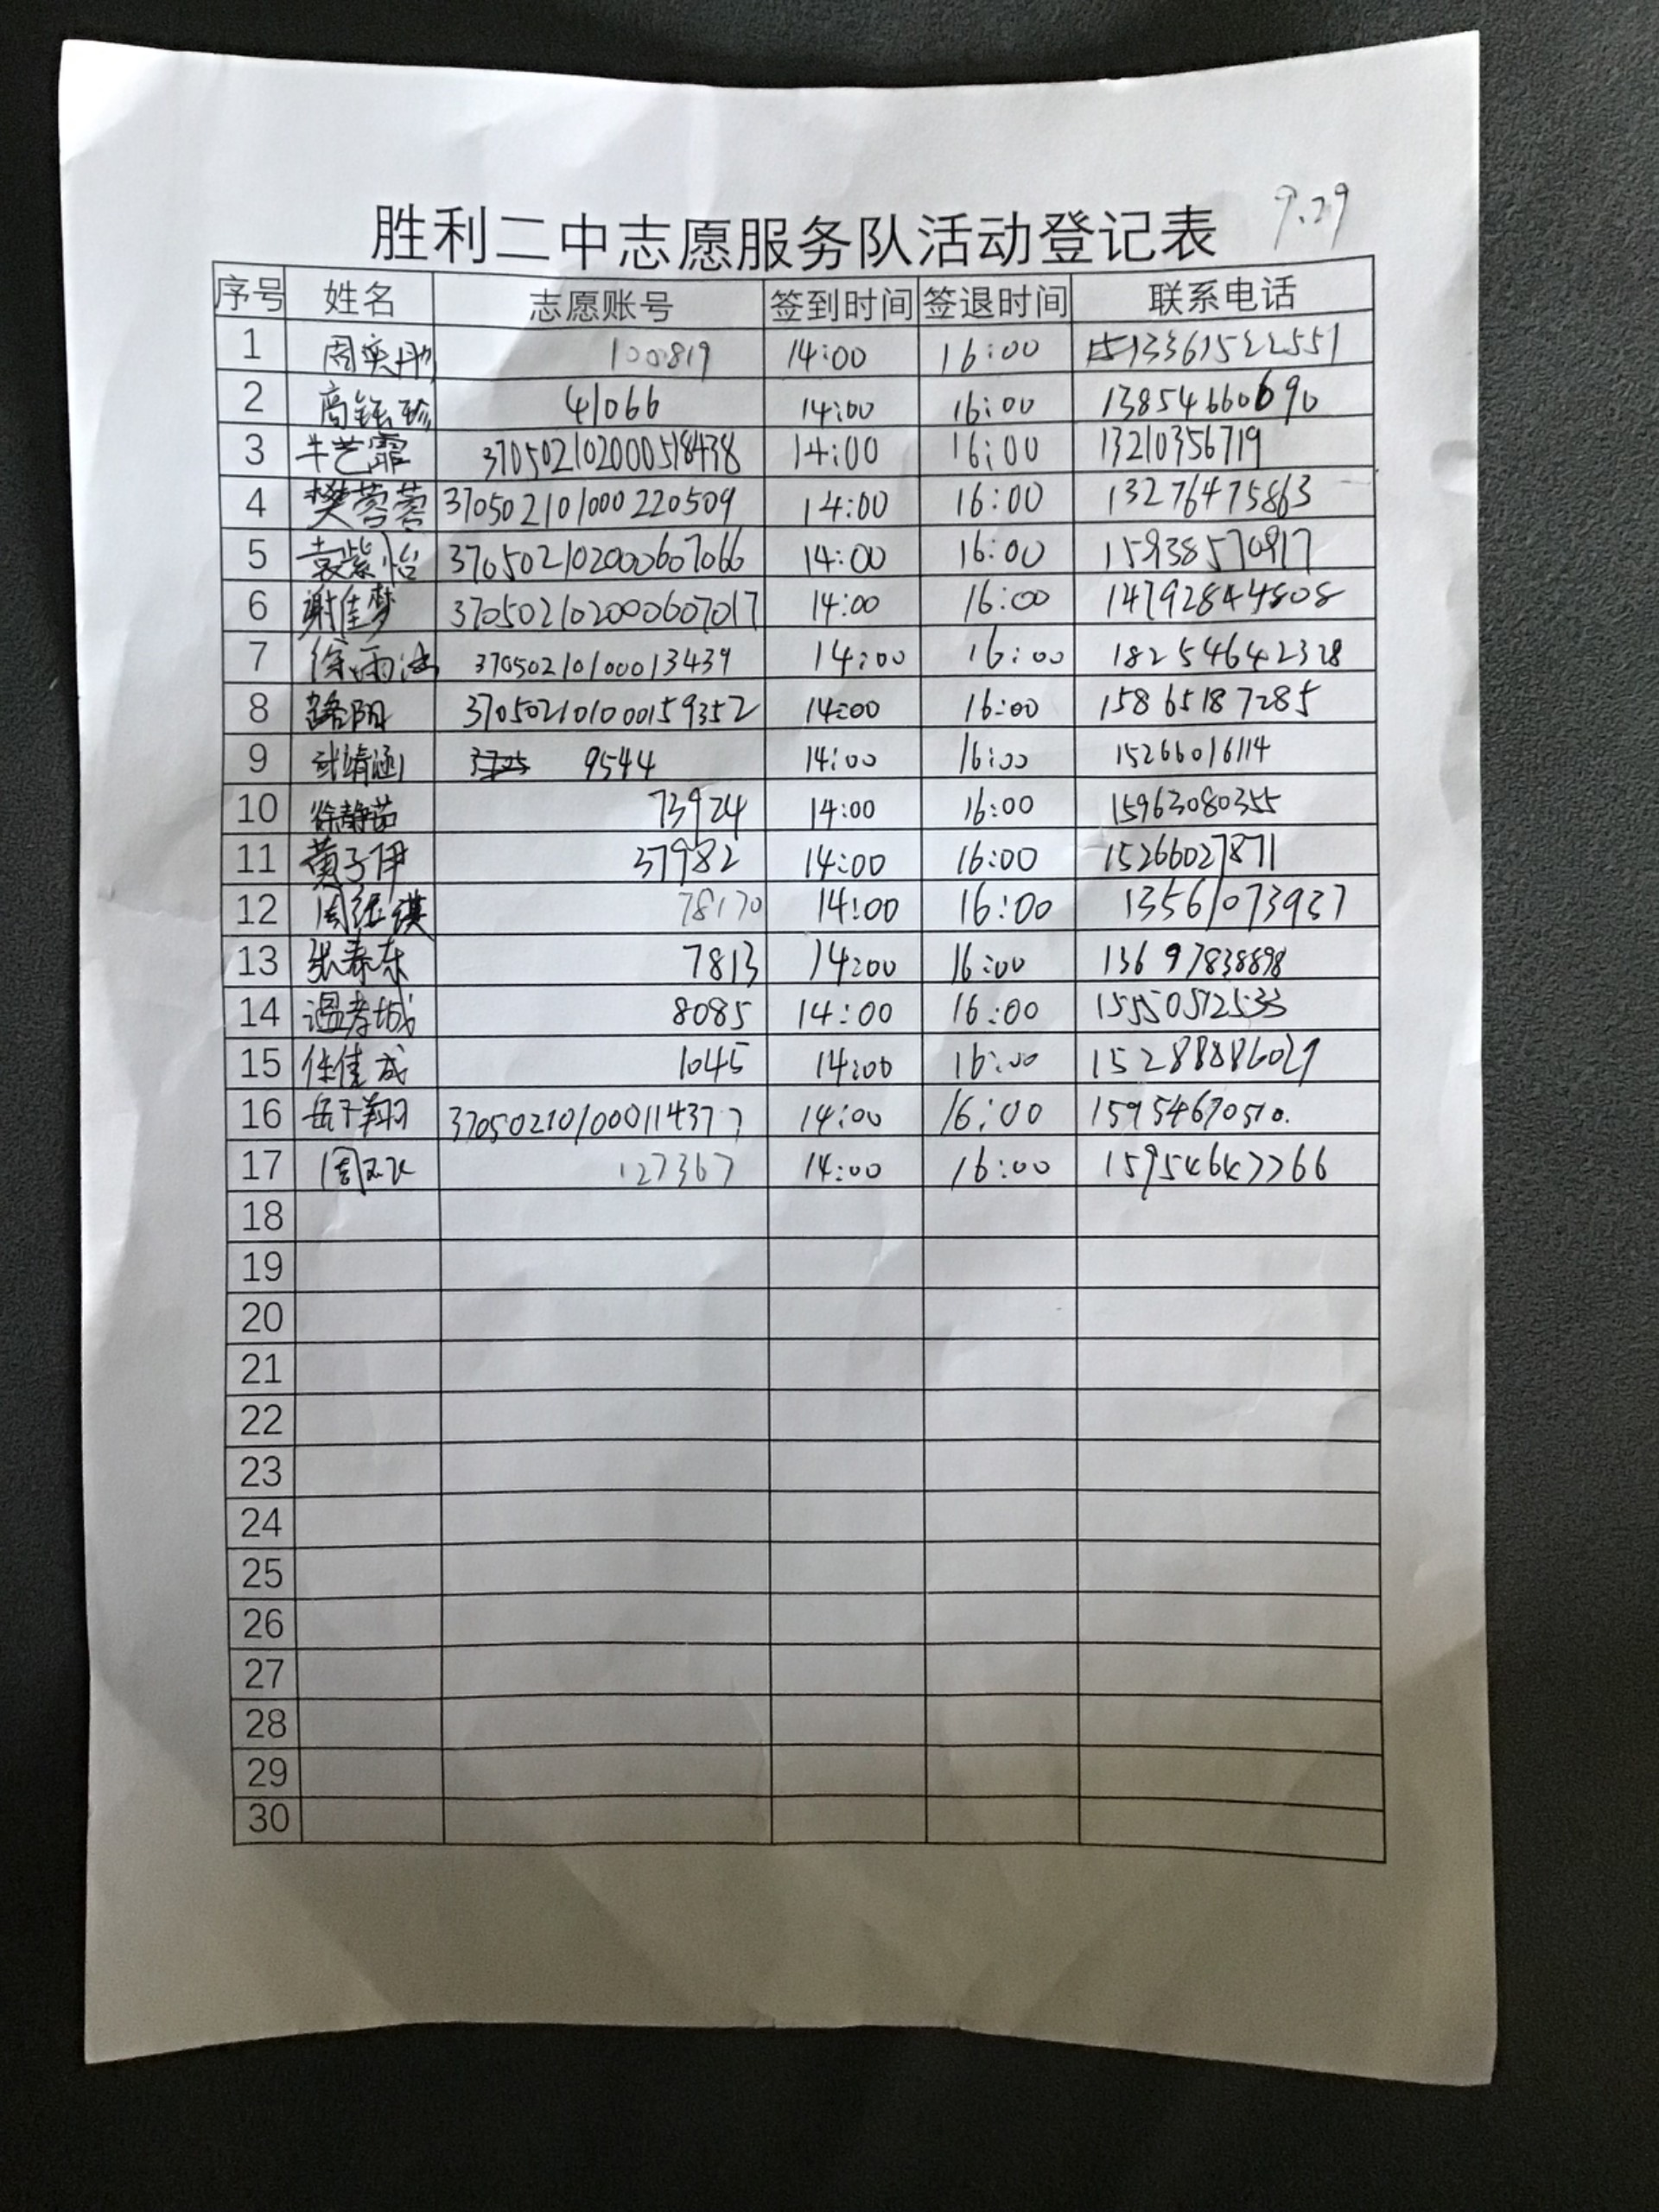 胜利二中志愿服务队活动登记表 9.29
序号 姓名 志愿账号 签到时间 签退时间 联系电话
1 周奕彤 100819 14:00 16:00 13361522551
2 高钰珍 41066 14:00 16:00 13854660690
3 牛艺霏 370502102000518438 14:00 16:00 13210356719
4 樊蓉蓉 370502101000220509 14:00 16:00 13276475863
5 袁紫怡 370502102000607066 14:00 16:00 15938570917
6 谢佳梦 370502102000607017 14:00 16:00 14792844808
7 徐雨 37050210100013439 14:00 16:00 18254642328
8 路阳 370502101000159352 14:00 16:00 15865187285
9 靖涵 9544 14:00 16:00 15266016114
10 徐静茹 73924 14:00 16:00 15963080355
11 黄子伊 37982 14:00 16:00 15266027871
12 周钰祺 78170 14:00 16:00 13561073937
13 张泰东 7813 14:00 16:00 13697838898
14 温孝城 8085 14:00 16:00 15550512533
15 任佳成 1045 14:00 16:00 15288886029
16 岳子翔 370502101000114377 14:00 16:00 15954670510.
17 周 127367 14:00 16:00 15954647766
18
19
20
21
22
23
24
25
26
27
28
29
30